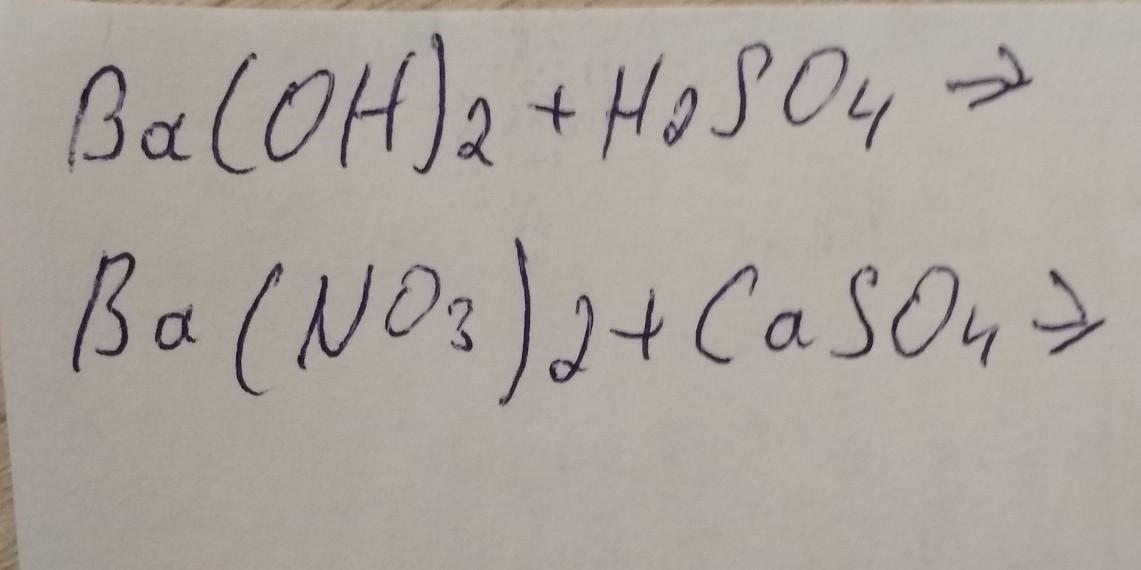 Ba(OH)2 + H2SO4 →
Ba(NO3)2 + CaSO4 →